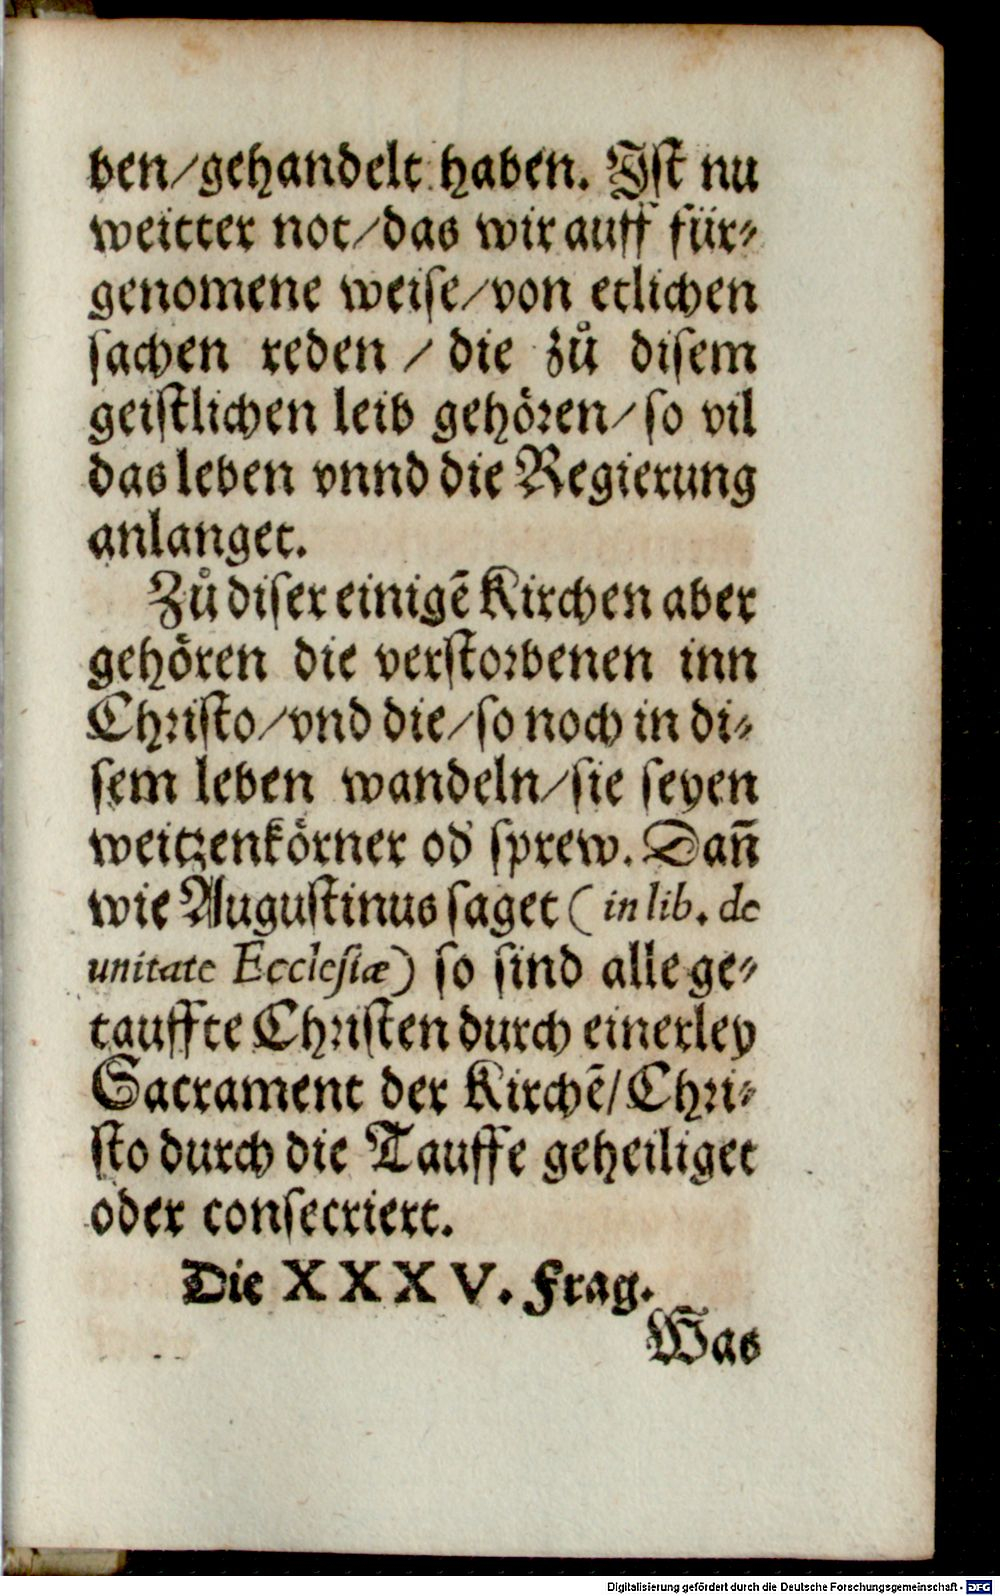 ben/gehandelt haben. Ist nu
weitter not/das wir auff für⸗
genomene weise/von etlichen
sachen reden / die zů disem
geistlichen leib gehören/so vil
das leben vnnd die Regierung
anlanget.
Zů diser einigē Kirchen aber
gehören die verstorbenen inn
Christo/vnd die/so noch in di⸗
sem leben wandeln/sie seyen
weitzenkörner od̕ sprew. Dañ
wie Augustinus saget (in lib. de
unitate Ecclesiæ) so sind alle ge⸗
tauffte Christen durch einerley
Sacrament der Kirchē/Chri⸗
sto durch die Tauffe geheiliget
oder consecriert.
Die XXXV. Frag.
Was
Digitalisierung gefördert durch die Deutsche Forschungsgemeinschaft - DFG